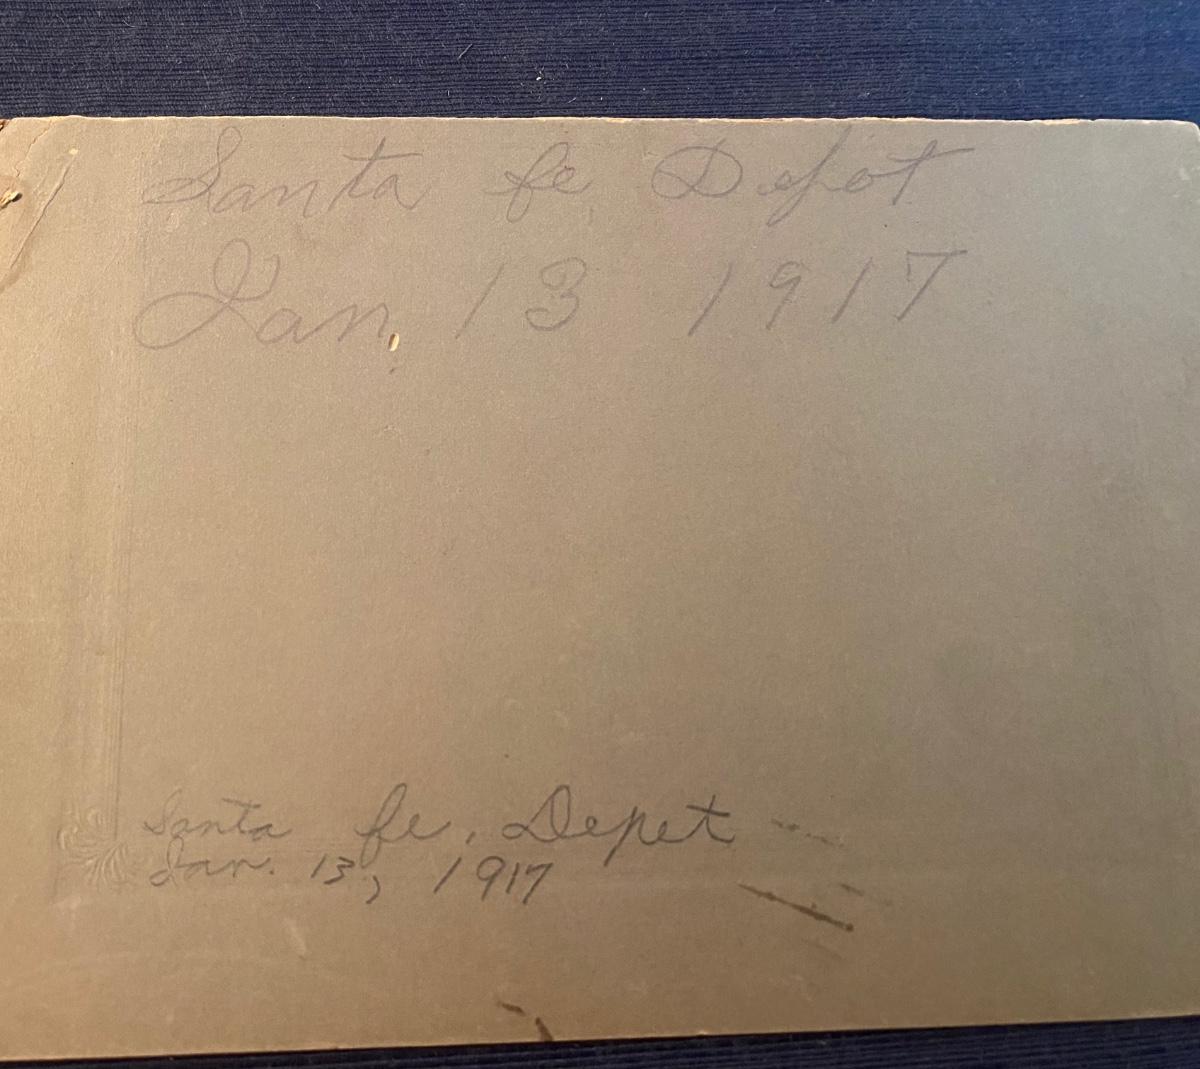 Santa fe Depot
Jan. 13 1917
Santa fe, Depet
Jan. 13, 1917